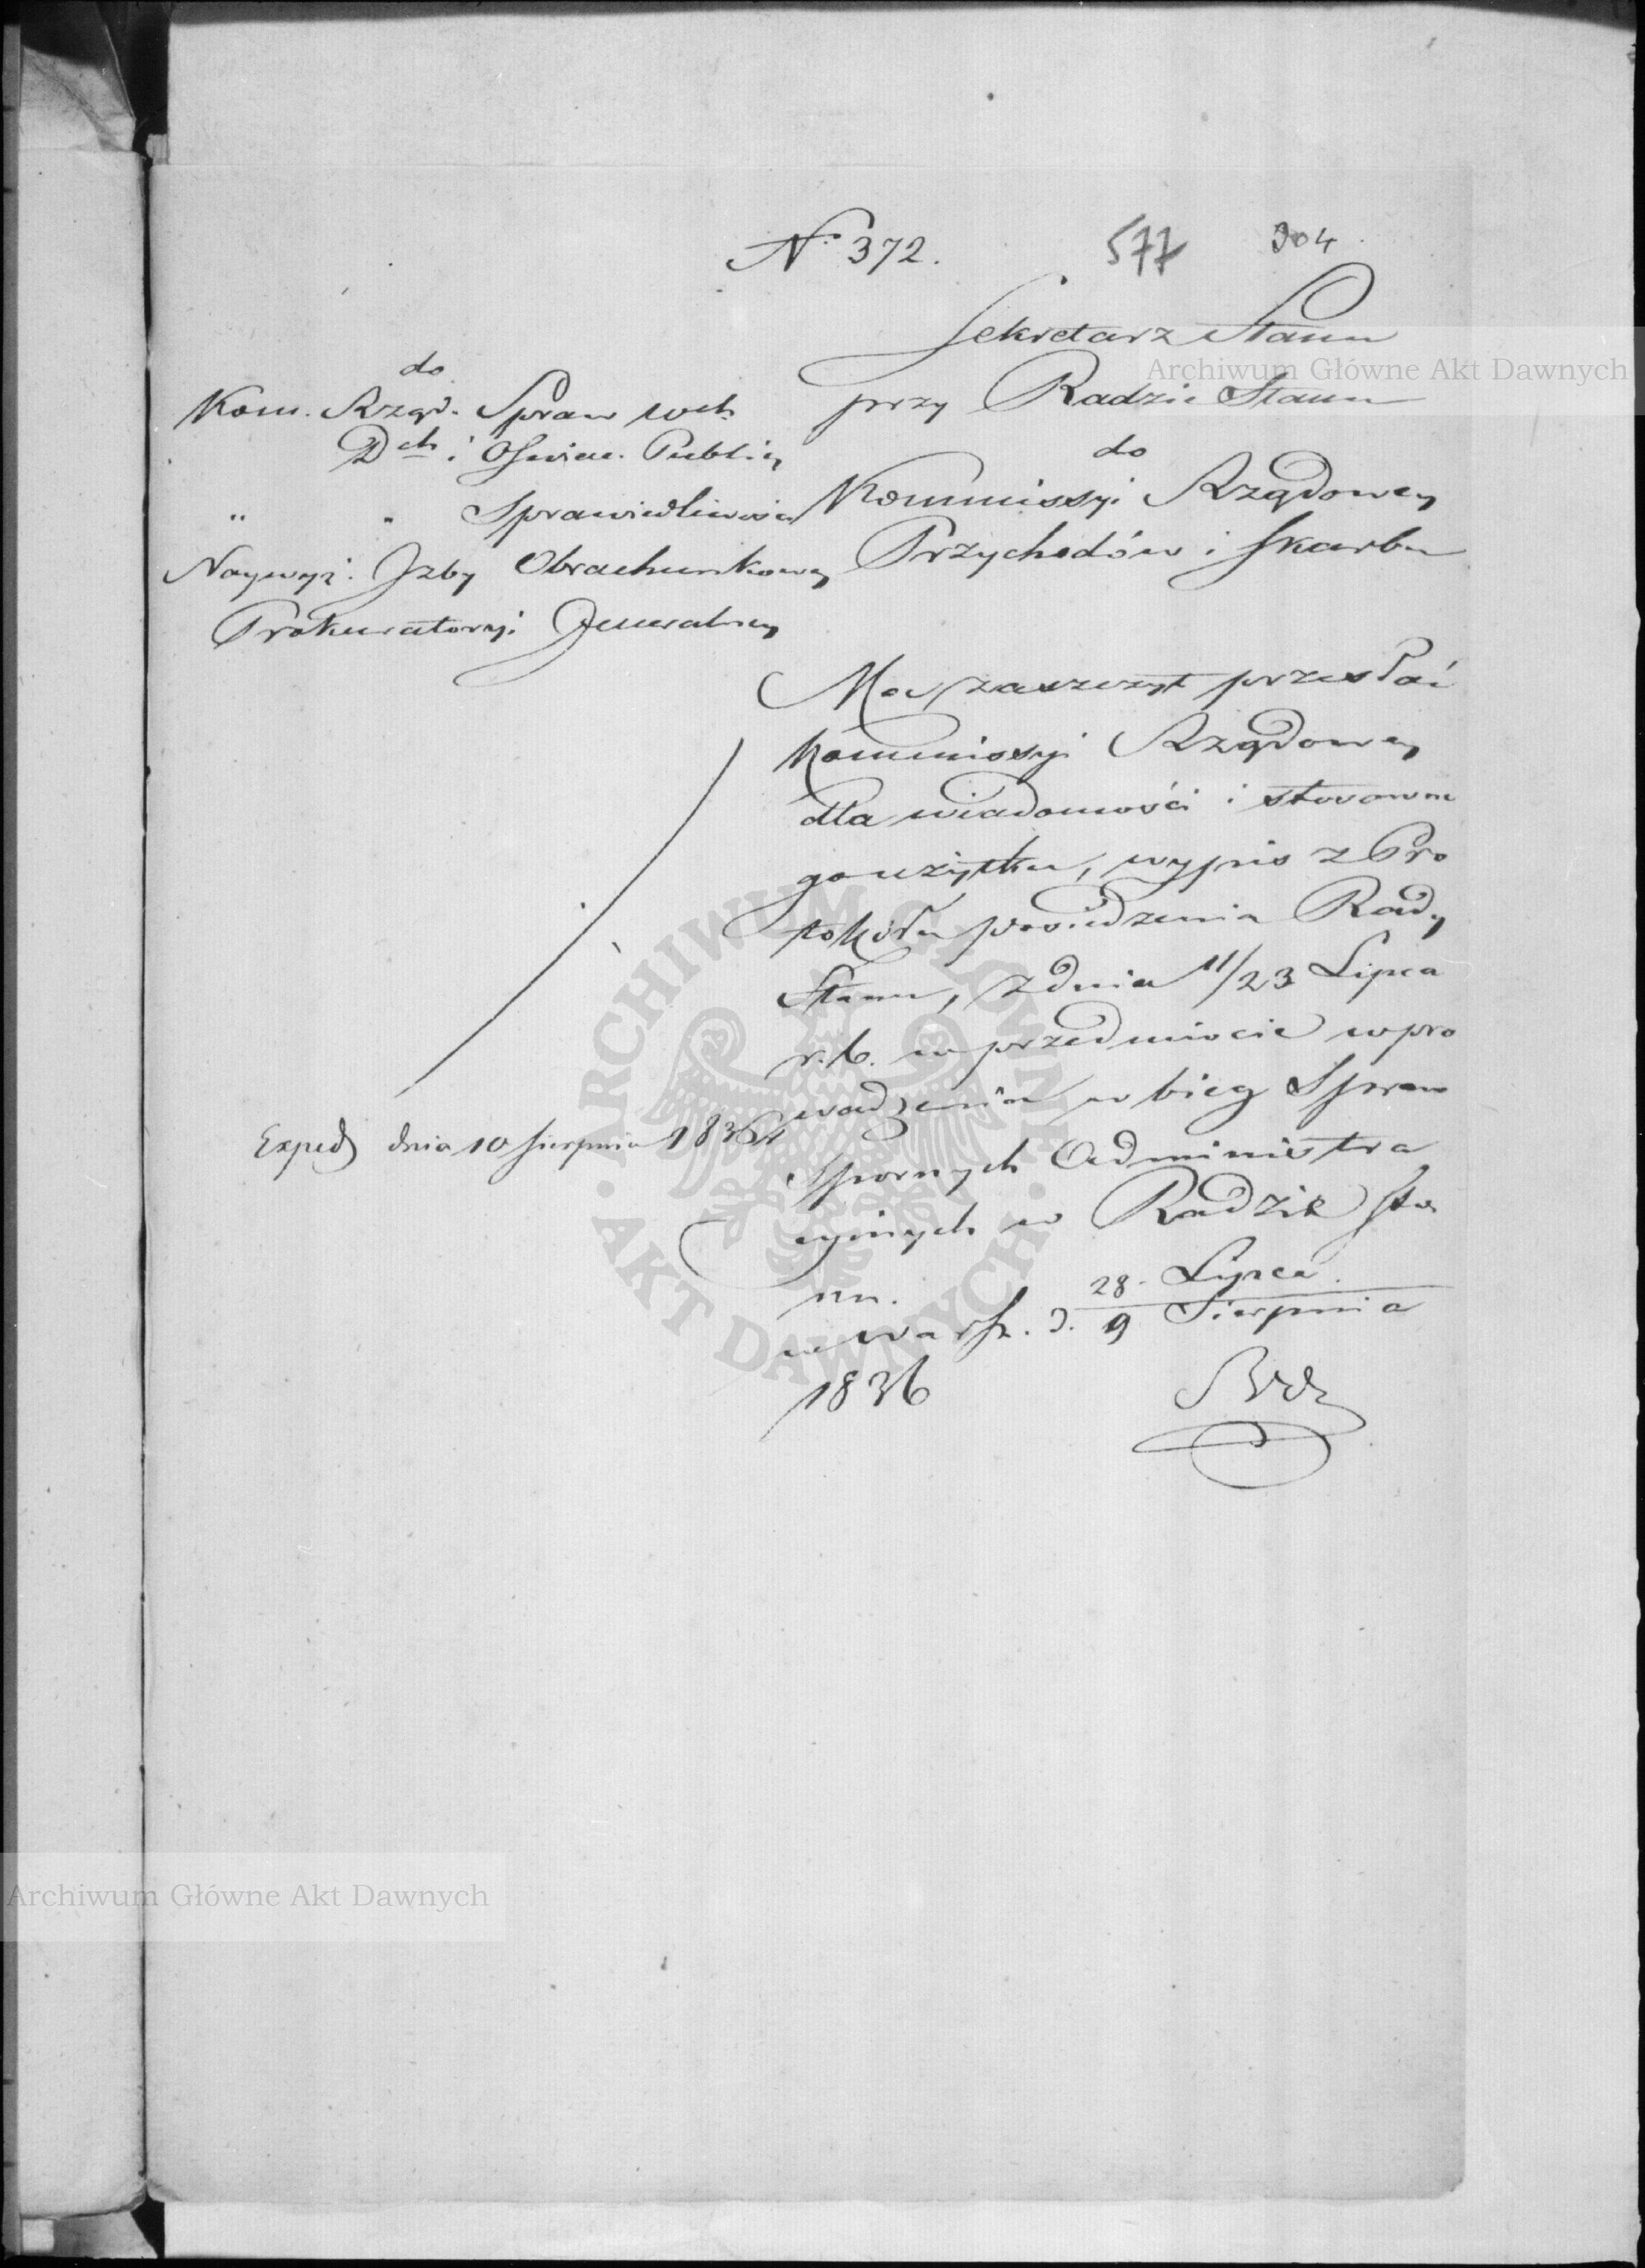 N° 372.
577
304
Sekretarz Stanu
przy Radzie Stanu
do
Kommissyi Rządowey
Przychodów i Skarbu
do
Kom. Rząd. Spraw Wew.
Dch i Oświec. Public
" " Sprawiedliwości
Naywyż. Izby Obrachunkowey
Prokuratoryi Jeneralney
Ma zaszczyt przesłać
Kommissyi Rządowey
dla wiadomości i stosowne
go użytku, wypis z Pro
tokółu posiedzenia Rady
Stanu, z dnia 11/23 Lipca
r. b. w przedmiocie wpro
wadzenia w bieg Spraw
Spornych Administra
cyinych w Radzie Sta
nu.
w Warsz. d. 28 Lipca / 9 Sierpnia
1836
Exped dnia 10 Sierpnia 1836
Archiwum Główne Akt Dawnych
ARCHIWUM GŁÓWNE AKT DAWNYCH
Archiwum Główne Akt Dawnych